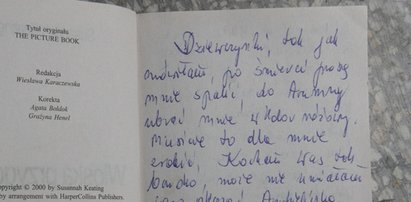 Tytuł oryginału
THE PICTURE BOOK
Redakcja
Wiesława Karaczewska
Korekta
Agata Bołdok
Grażyna Henel
Copyright © 2000 by Susannah Keating
by arrangement with HarperCollins Publishers.
Dziewczynki, tak jak
mówiłam, po śmierci proszę
mnie spalić, do trumny
ubrać mnie w kolor różowy.
Musicie to dla mnie
zrobić. Kocham Was tak
bardzo, może nie umiałam